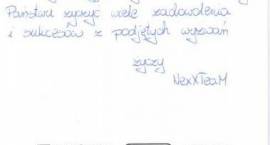 Państwu życzyć wiele zadowolenia
i sukcesów z podjętych wyzwań
życzy
NexXTeaM